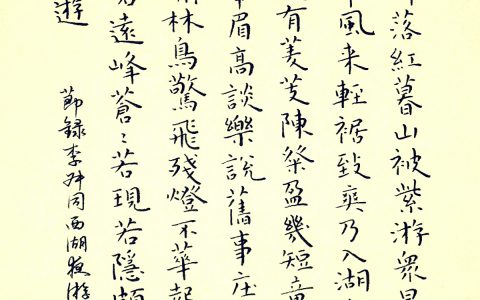 落紅暮山被紫游衆
風来輕裾致爽乃入湖
有菱芰陳粲盈幾短童
眉高談樂說舊事庄
林鳥驚飛殘燈不華起
遠峰蒼〻若現若隱頗
遊
節錄李叔同西湖夜游